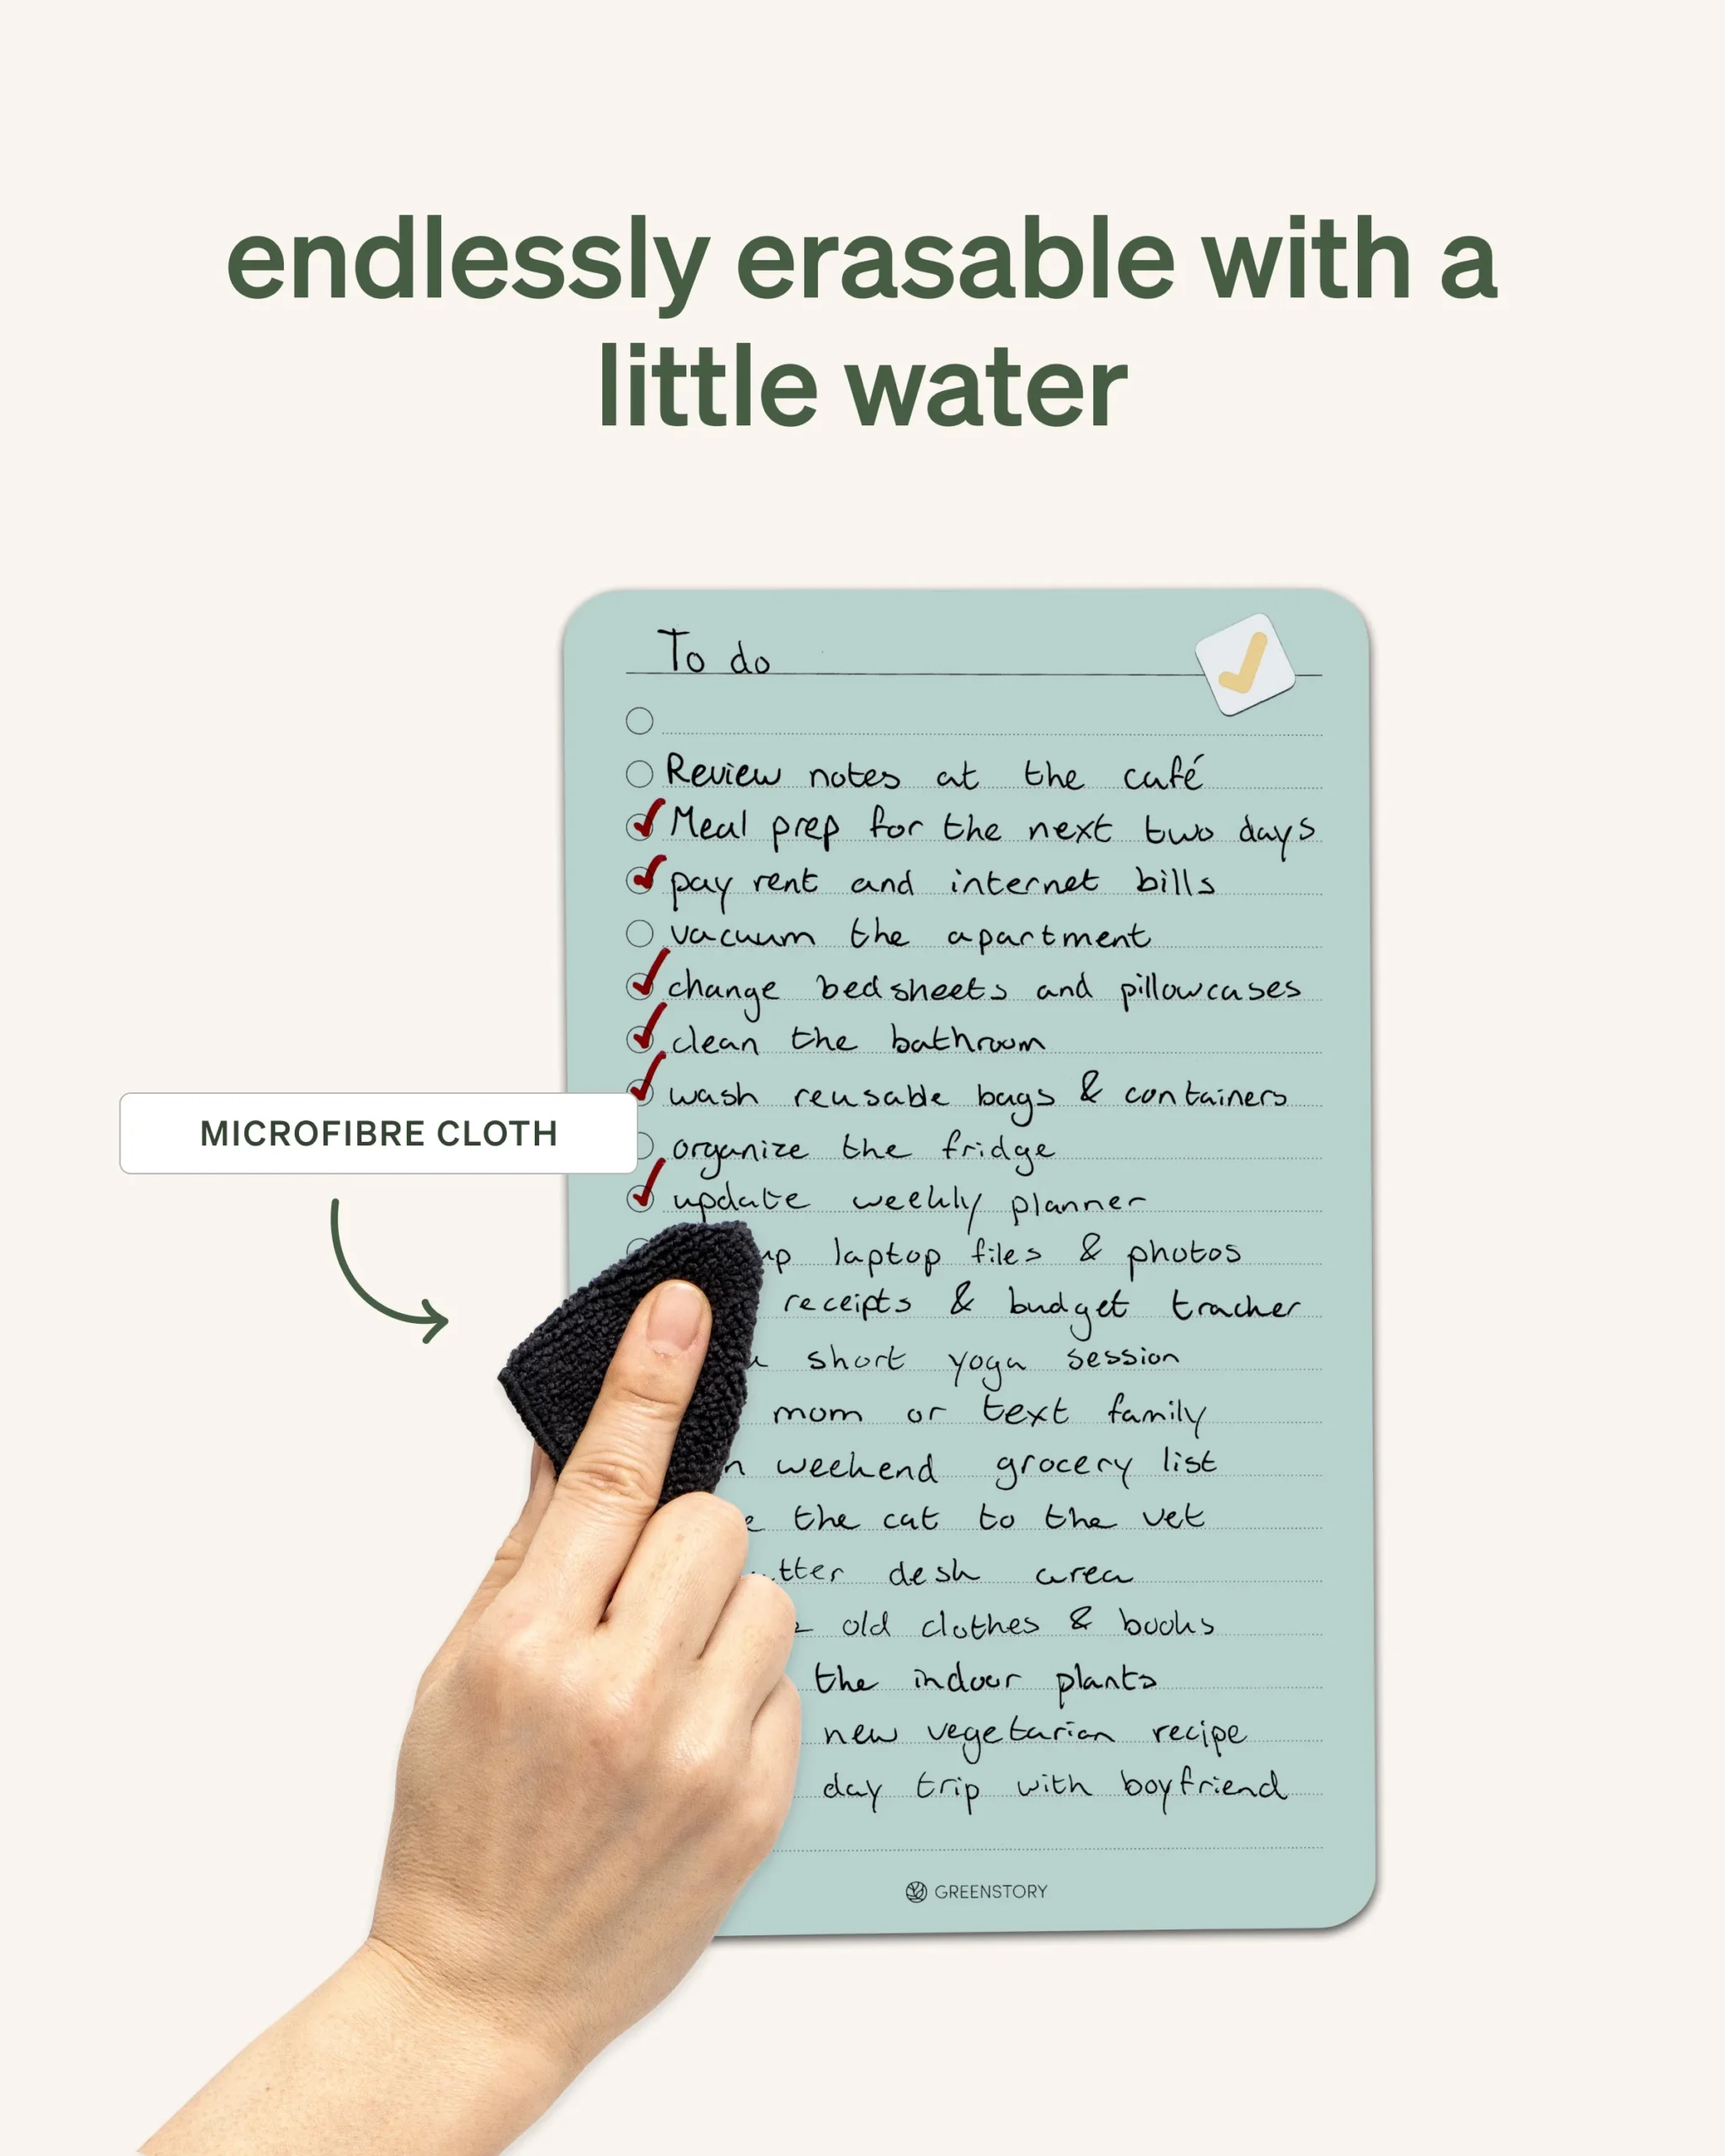 endlessly erasable with a
little water
To do
Review notes at the café
Meal prep for the next two days
pay rent and internet bills
vacuum the apartment
change bedsheets and pillowcases
clean the bathroom
wash reusable bags & containers
MICROFIBRE CLOTH
organize the fridge
update weekly planner
up laptop files & photos
receipts & budget tracker
short yoga session
mom or text family
weekend grocery list
the cat to the vet
desk area
old clothes & books
the indoor plants
new vegetarian recipe
day trip with boyfriend
GREENSTORY